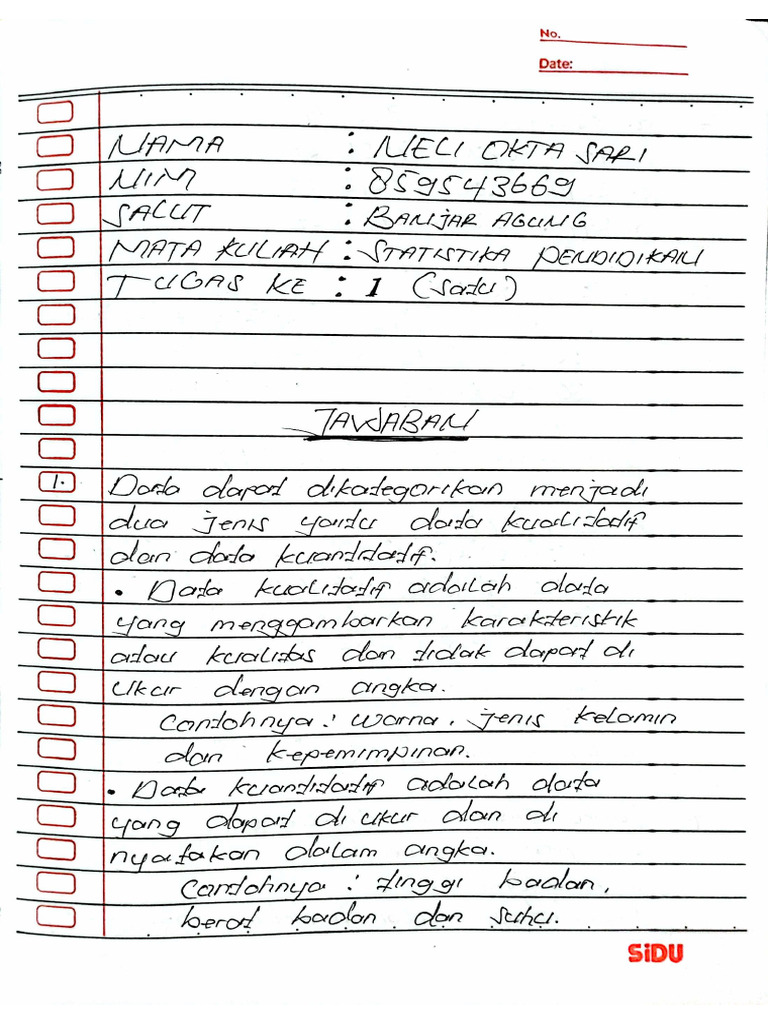 No.
Date:
NAMA : MELI OKTA SARI
NIM : 859543669
SALUT : BANJAR AGUNG
MATA KULIAH : STATISTIKA PENDIDIKAN
TUGAS KE : 1 (Satu)
JAWABAN
1. Data dapat dikategorikan menjadi
dua jenis yaitu data kualitatif
dan data kuantitatif.
• Data kualitatif adalah data
yang menggambarkan karakteristik
atau kualitas dan tidak dapat di
ukur dengan angka.
Contohnya : warna, jenis kelamin
dan kepemimpinan.
• Data kuantitatif adalah data
yang dapat di ukur dan di
nyatakan dalam angka.
Contohnya : tinggi badan,
berat badan dan suhu.
SiDU